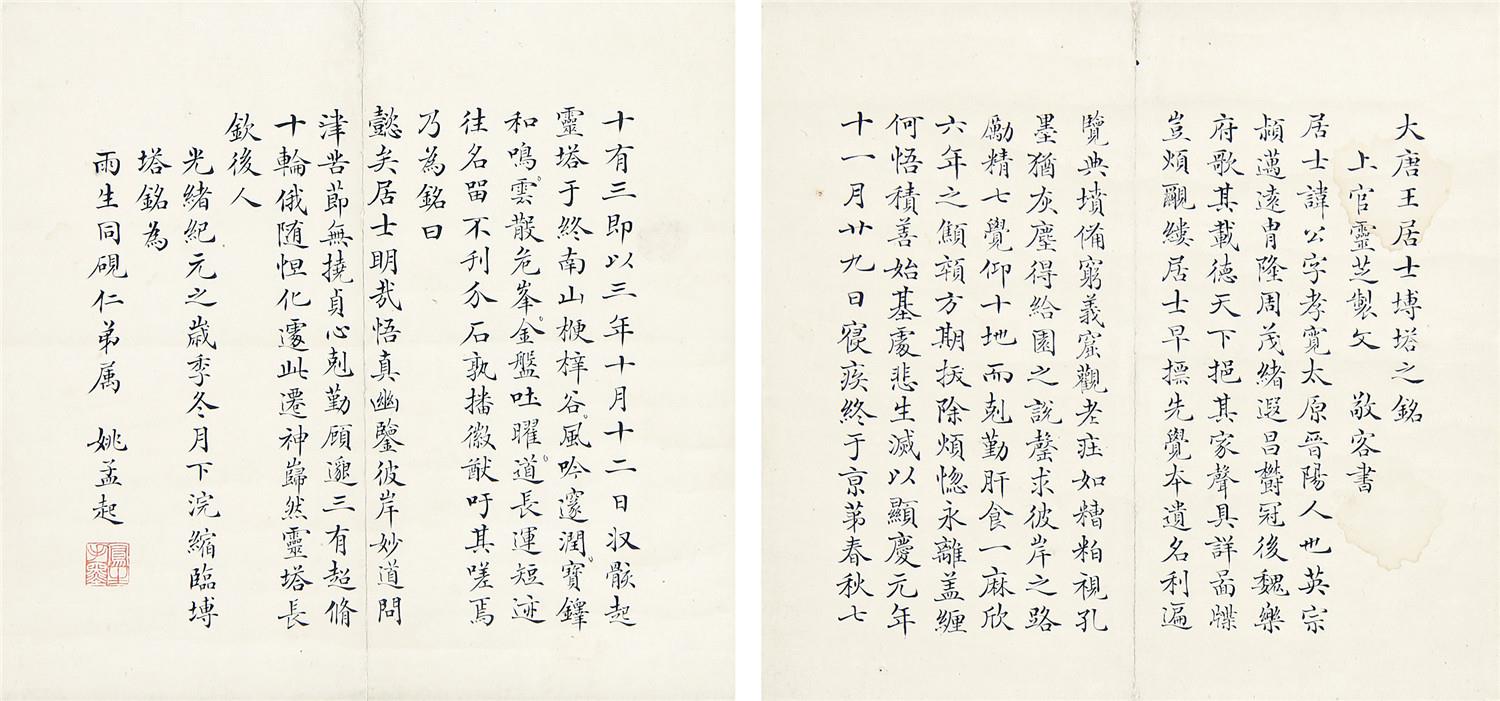 大唐王居士塼塔之銘
上官靈芝製文 敬客書
居士諱公字孝寬太原晉陽人也英宗
頴邁遠冑隆周茂緒遐昌欝冠後魏樂
府歌其載德天下挹其家聲具詳啚牒
豈煩覼縷居士早摽先覺本遺名利遍
覽典墳俻窮義窟觀老莊如糟粕視孔
墨猶灰塵得給園之說罄求彼岸之路
勵精七覺仰十地而剋勤肝食一麻欣
六年之顦顇方期拔除煩惱永離盖纏
何悟積善始基處悲生滅以顯慶元年
十一月廿九日寢疾終于京第春秋七
十有三即以三年十月十二日収骸起
靈塔于終南山楩梓谷風吟邃澗寶鐸
和鳴雲散危峯金盤吐曜道長運短迹
往名留不刊介石孰播徽猷吁其嗟焉
乃為銘曰
懿矣居士明哉悟真幽鑒彼岸妙道問
津苦莭無撓貞心剋勤顧邈三有超脩
十輪俄随怛化遽此遷神巋然靈塔長
欽後人
光緒紀元之歲季冬月下浣縮臨塼
塔銘為
雨生同硯仁弟属 姚孟起